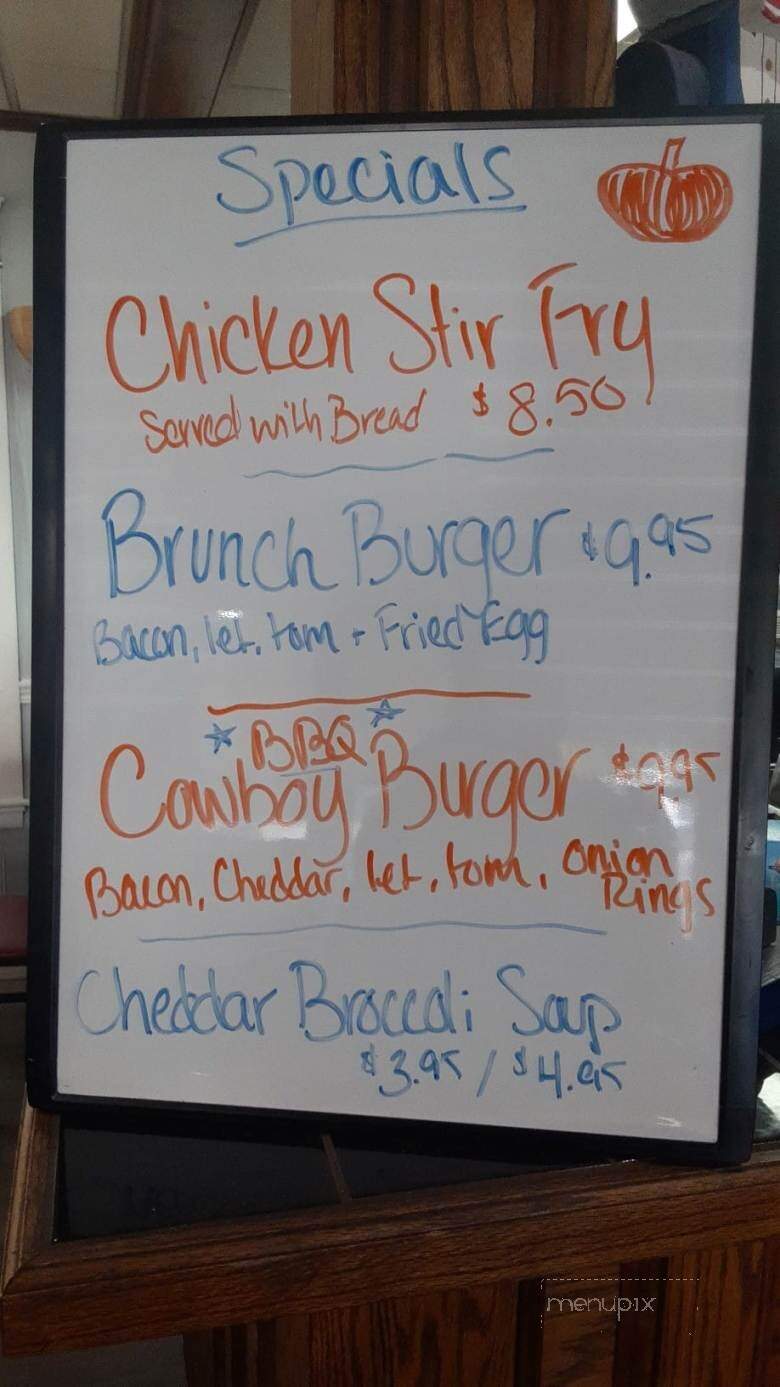 Specials
Chicken Stir Fry
Served with Bread $8.50
Brunch Burger $9.95
Bacon, let. tom + Fried Egg
BBQ
Cowboy Burger $9.95
Bacon, Cheddar, let, tom, Onion
Rings
Cheddar Broccoli Soup
$3.95 / $4.95
menupix